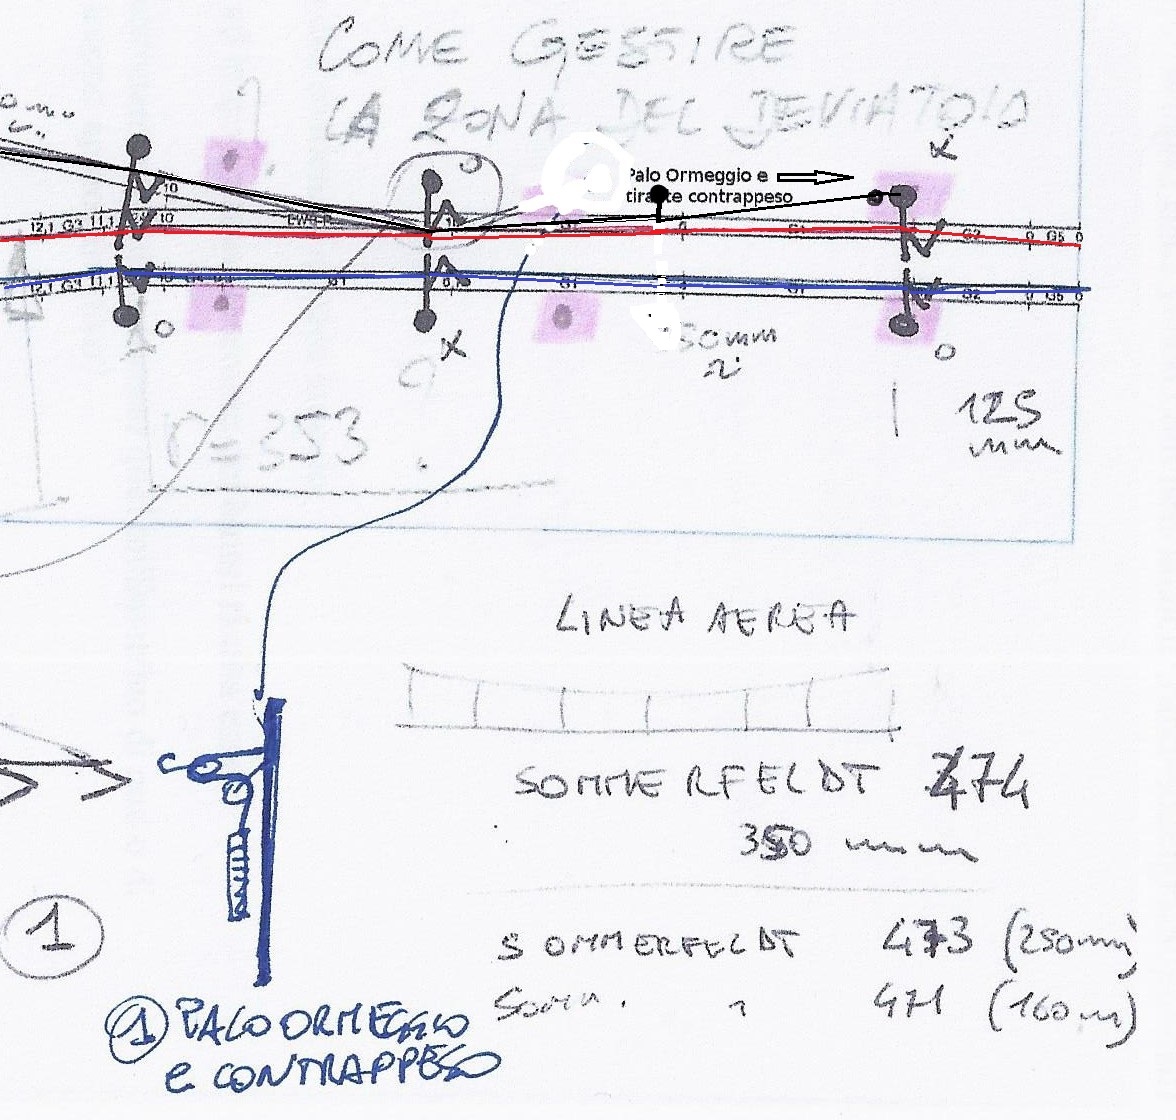 COME GESTIRE
LA ZONA DEL DEVIATOIO
?
X
10
Palo Ormeggio e
tirante contrappeso
12,1 G3 11,1
10
EW3-R
G1
G1
G2
0
G5
0
12,1 G3 11,1
G1
G1
G1
G2
0
G5
0
O
X
50mm
O
125
mm
r=353.
LINEA AEREA
SOMMERFELDT 474
350 mm
1
SOMMERFELDT 473 (250mm)
SOMM. " 471 (160m)
1 PALO ORMEGGIO
e CONTRAPPESO